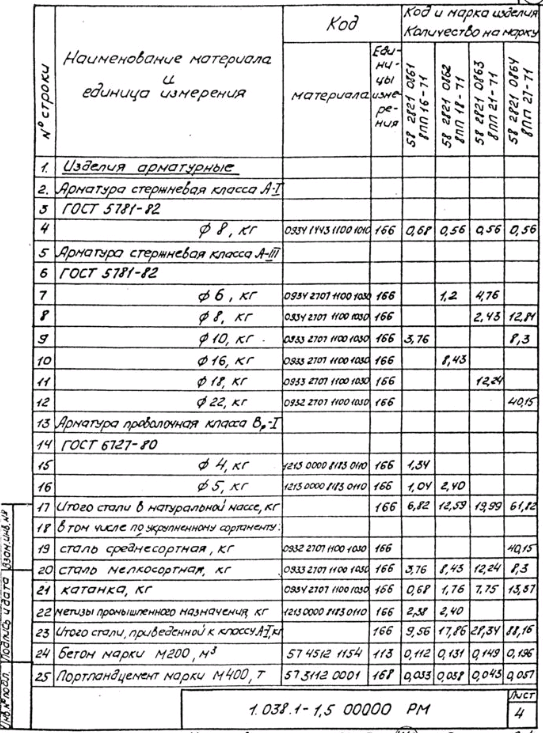 Наименование материала и единица измерения
Код
Код и марка изделия
Количество на марку
№ строки
материала
Единицы измерения
58 2821 0861 8ПП 16-71
58 2821 0862 8ПП 18-71
58 2821 0863 8ПП 21-71
58 2821 0864 8ПП 27-71
1. Изделия арматурные
2. Арматура стержневая класса А-I
3 ГОСТ 5781-82
4 ϕ 8, кг 0934 1443 1100 1010 166 0,68 0,56 0,56 0,56
5 Арматура стержневая класса А-III
6 ГОСТ 5781-82
7 ϕ 6, кг 0934 2707 1100 1030 166 1,2 4,76
8 ϕ 8, кг 0934 2707 1100 1030 166 2,43 12,81
9 ϕ 10, кг 0933 2707 1100 1030 166 3,76 8,3
10 ϕ 16, кг 0933 2707 1100 1030 166 8,43
11 ϕ 18, кг 0933 2707 1100 1030 166 12,24
12 ϕ 22, кг 0932 2707 1100 1030 166 40,15
13 Арматура проволочная класса Вр-I
14 ГОСТ 6727-80
15 ϕ 4, кг 1213 0000 8183 0110 166 1,34
16 ϕ 5, кг 1213 0000 8183 0110 166 1,04 2,40
17 Итого стали в натуральной массе, кг 166 6,82 12,59 19,99 61,82
18 в том числе по укрупненному сортаменту:
19 сталь среднесортная, кг 0932 2707 1100 1030 166 40,15
20 сталь мелкосортная, кг 0933 2707 1100 1030 166 3,76 8,43 12,24 8,3
21 катанка, кг 0934 2707 1100 1030 166 0,68 1,76 7,75 13,37
22 метизы промышленного назначения, кг 1213 0000 8183 0110 166 2,38 2,40
23 Итого стали, приведенной к классу А-I, кг 166 9,56 17,86 28,34 88,16
24 Бетон марки М200, м³ 57 4512 1154 113 0,112 0,131 0,149 0,196
25 Портландцемент марки М400, т 57 3112 0001 168 0,033 0,038 0,043 0,057
Инв.№ подл.
Подпись и дата
Взам.инв.№
1.038.1-1,5 00000 РМ
Лист
4